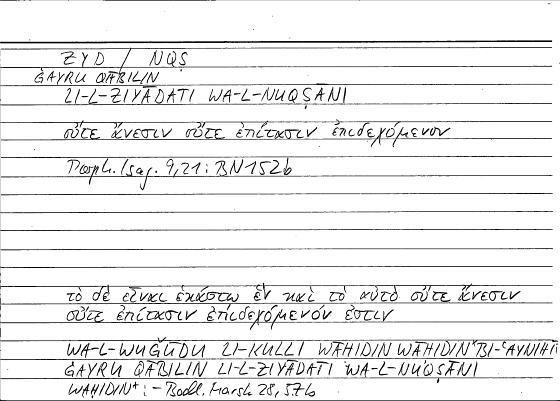 ZYD / NQṢ
ĠAYRU QĀBILIN
LI-L-ZIYĀDATI WA-L-NUQṢĀNI
οὔτε ἄνεσιν οὔτε ἐπίτασιν ἐπιδεχόμενον
Porph. Isag. 9,21: BN 152b
τὸ δὲ εἶναι ἑκάστῳ ἓν καὶ τὸ αὐτὸ οὔτε ἄνεσιν
οὔτε ἐπίτασιν ἐπιδεχόμενόν ἐστιν
WA-L-WUǦŪDU LI-KULLI WĀḤIDIN WĀḤIDIN⁺ BI-ʿAYNIHĪ
ĠAYRU QĀBILIN LI-L-ZIYĀDATI WA-L-NUQṢĀNI
WĀḤIDIN⁺: – Bodl. Marsh 28, 57b